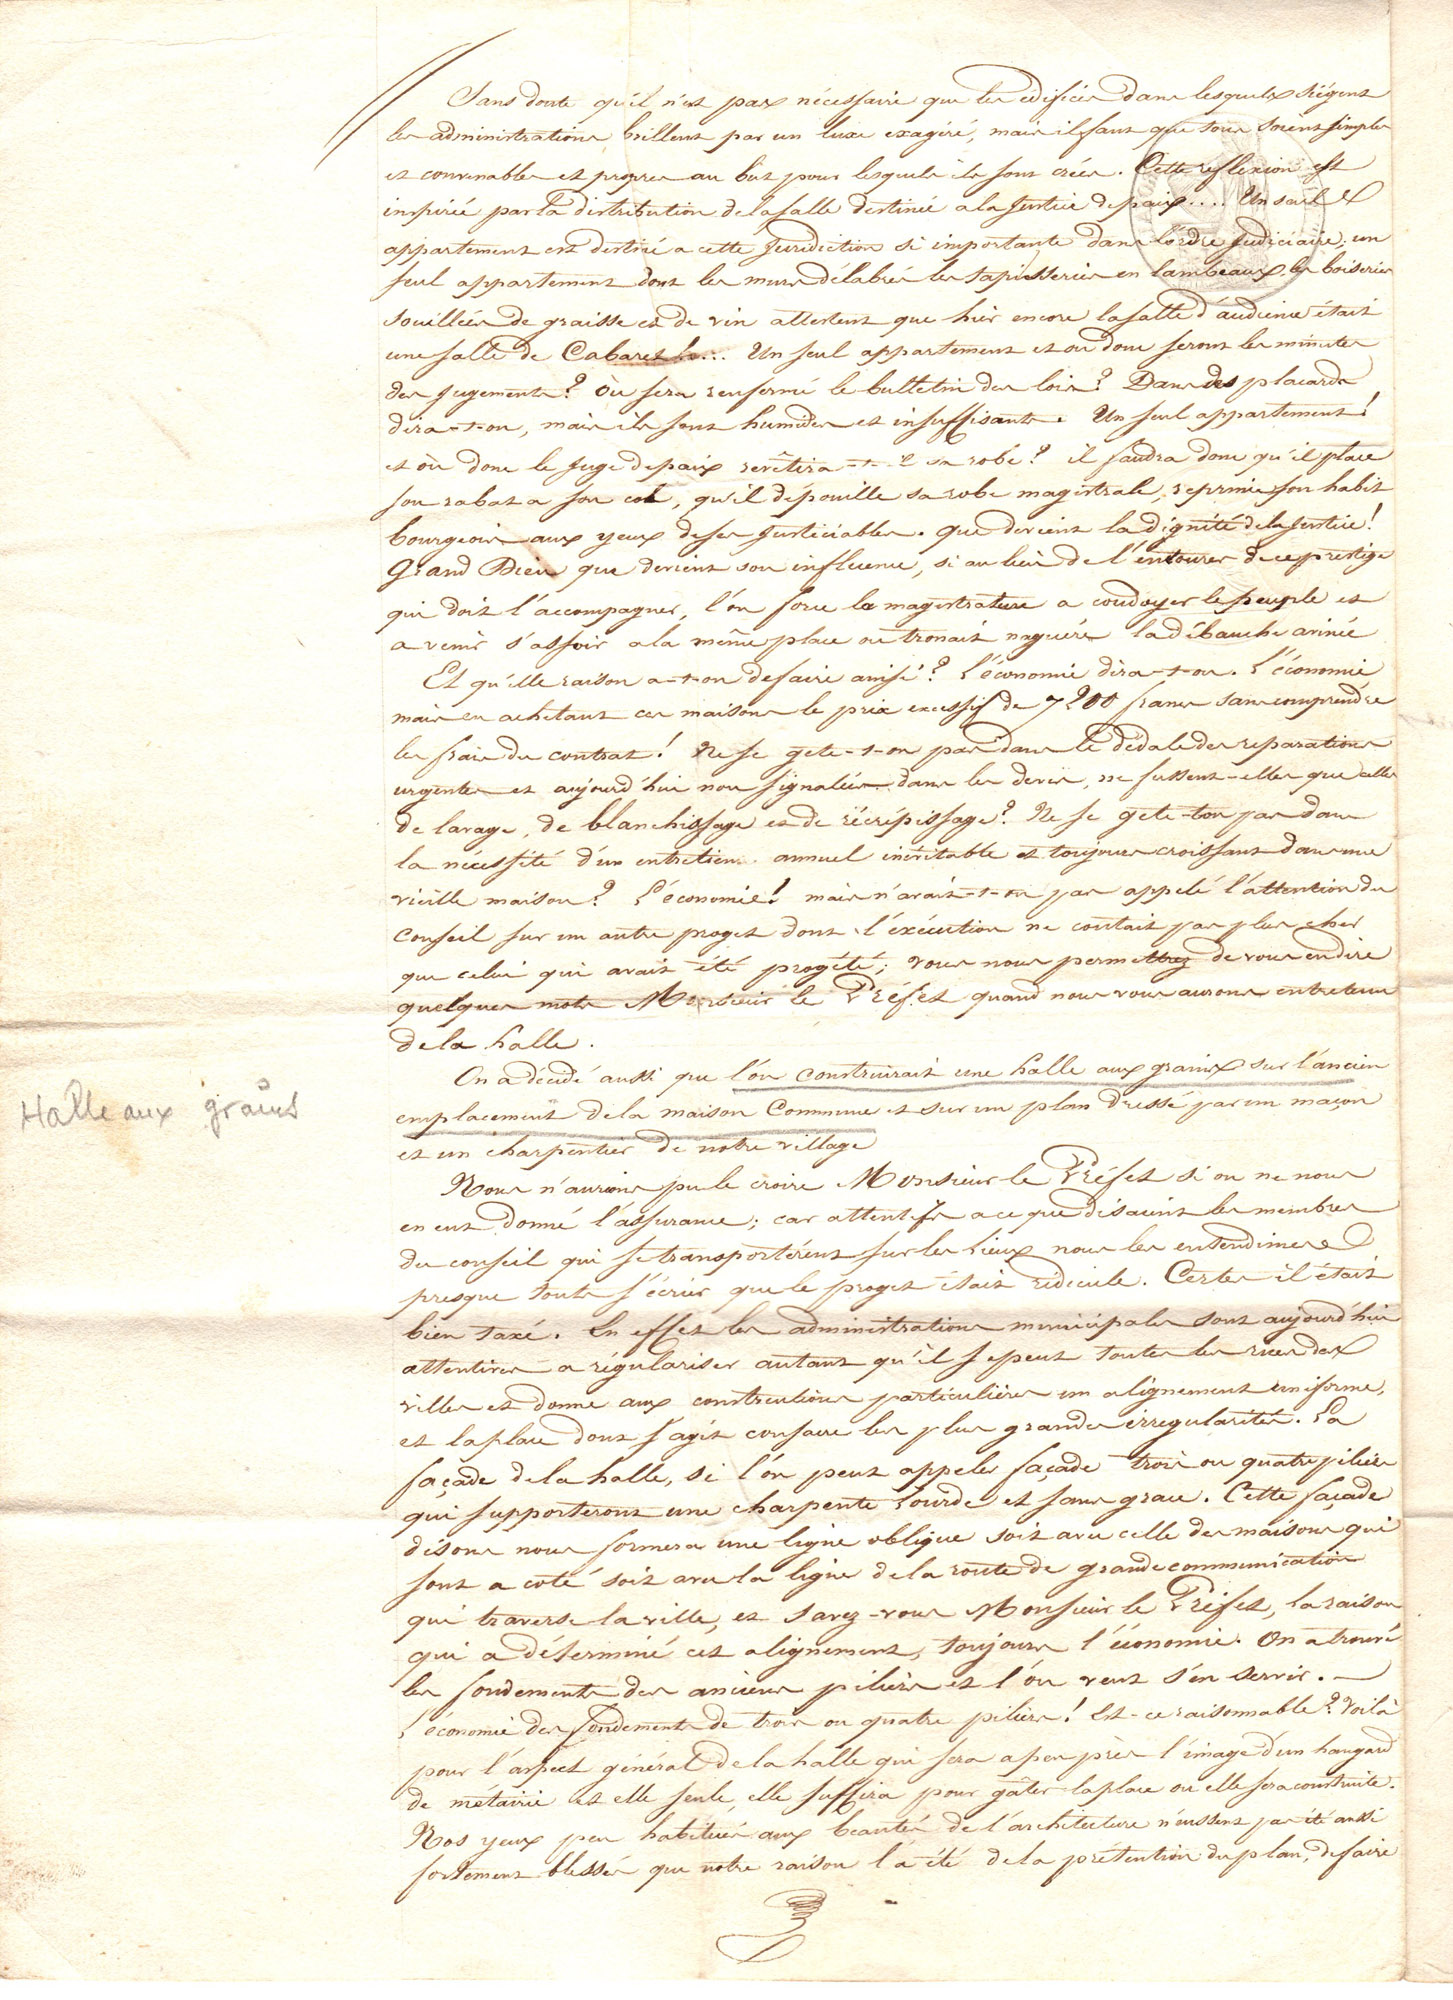 Sans doute qu'il n'est pas nécessaire que les édifices dans lesquels siégent
les administrations brillent par un luxe exagéré, mais il faut que tous soient simples
et convenables et propres au but pour lesquels ils sont créés. Cette reflexion est
inspirée par la distribution de la salle destinée a la Justice de paix.... Un seul
appartement est destiné a cette Juridiction si importante dans l'ordre Judiciaire; un
seul appartement dont les murs délabrés les tapisseries en lambeaux, les boiseries
souillées de graisse et de vin attestent que hier encore la salle d'audience était
une salle de Cabaret!... Un seul appartement et ou donc seront les minutes
des jugements? Où sera renfermé le bulletin des lois? Dans des placards
dira-t-on, mais ils sont humides et insuffisants. Un seul appartement!
et où donc le Juge de paix revêtira-t-il sa robe? il faudra donc qu'il place
son rabat a son col, qu'il dépouille sa robe magistrale, reprenne son habit
bourgeois aux yeux de ses Justiciables. que devient la dignité de la Justice!
Grand Dieu que devient son influence, si au lieu de l'entourer de ce prestige
qui doit l'accompagner, l'on force la magistrature a coudoyer le peuple et
a venir s'assoir a la même place ou tronait naguère la débauche avinée
Et qu'elle raison a-t-on de faire ainsi? L'économie dira-t-on. L'économie
mais en achetant ces maisons le prix excessif de 7200 francs sans comprendre
les frais du contrat! Ne se gete-t-on pas dans le dédale des reparations
urgentes et aujourd'hui non signalées dans les devis, ne fussent-elles que celles
de lavage, de blanchissage et de récrépissage? Ne se gete-ton pas dans
la nécessité d'un entretien annuel inévitable et toujours croissant dans une
vieille maison? L'économie! mais n'avait-t-on pas appelé l'attention du
Conseil sur un autre proget dont l'éxécution ne coutait pas plus cher
que celui qui avait été progété; vous nous permettrez de vous en dire
quelques mots Monsieur le Préfet quand nous vous aurons entretenu
de la halle.
On a décidé aussi que l'on construirait une halle aux grains sur l'ancien
emplacement de la maison Commune et sur un plan dressé par un maçon
et un charpentier de notre village
Halle aux grains
Nous n'aurions pu le croire Monsieur le Préfet si on ne nous
en eut donné l'assurance; car attentifs a ce que disaient les membres
du conseil qui se transportérent sur les Lieux nous les entendimes
presque touts s'écrier que le proget était ridicule. Certes il était
bien taxé. En effet les administrations municipales sont aujourd'hui
attentives a régulariser autant qu'il se peut toutes les rues des
villes et donne aux constructions particulières un alignement uniforme,
et la place dont s'agit consacre les plus grandes irregularités. La
façade de la halle, si l'on peut appeler façade trois ou quatre piliers
qui supporteront une charpente Lourde et sans grace. Cette façade
disons nous formera une ligne oblique soit avec celle des maisons qui
sont a coté soit avec la ligne de la route de grande communication
qui traverse la ville, et savez-vous Monsieur le Préfet, la raison
qui a déterminé cet alignement, toujours l'économie. On a trouvé
les fondements des anciens piliers et l'on veut s'en servir.
L'économie des fondements de trois ou quatre piliers! Est-ce raisonnable? Voilà
pour l'aspect général de la halle qui sera a peu près l'image d'un hangard
de métairie et elle seule, elle suffira pour gâter la place ou elle sera construite.
Nos yeux peu habitués aux beautés de l'architecture n'eussent pas été aussi
fortement blessés que notre raison l'a été de la prétention du plan, de faire